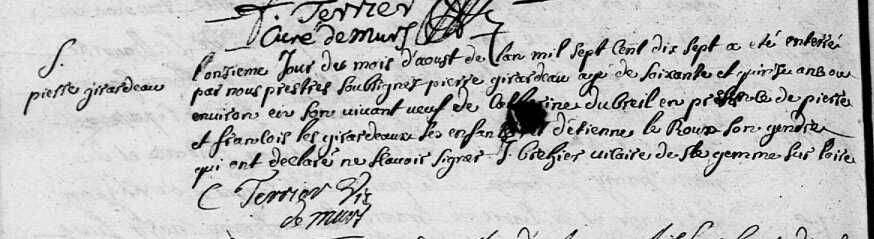 F. Terrier
Curé de murs
S.
pierre girardeau
L'onzieme Jour du mois d'aoust de l'an mil sept Cent dix sept a eté enterré
par nous prestres soubsignes pierre girardeau agé de soixante et quinze ans ou
environ en son vivant veuf de Catherine dubreil en presence de pierre
et francois les girardeaux ses enfans et d'etienne le Roux son gendre
qui ont declaré ne scavoir signer J. vicaire de ste gemme sur loire
C Terrier Vic
de murs